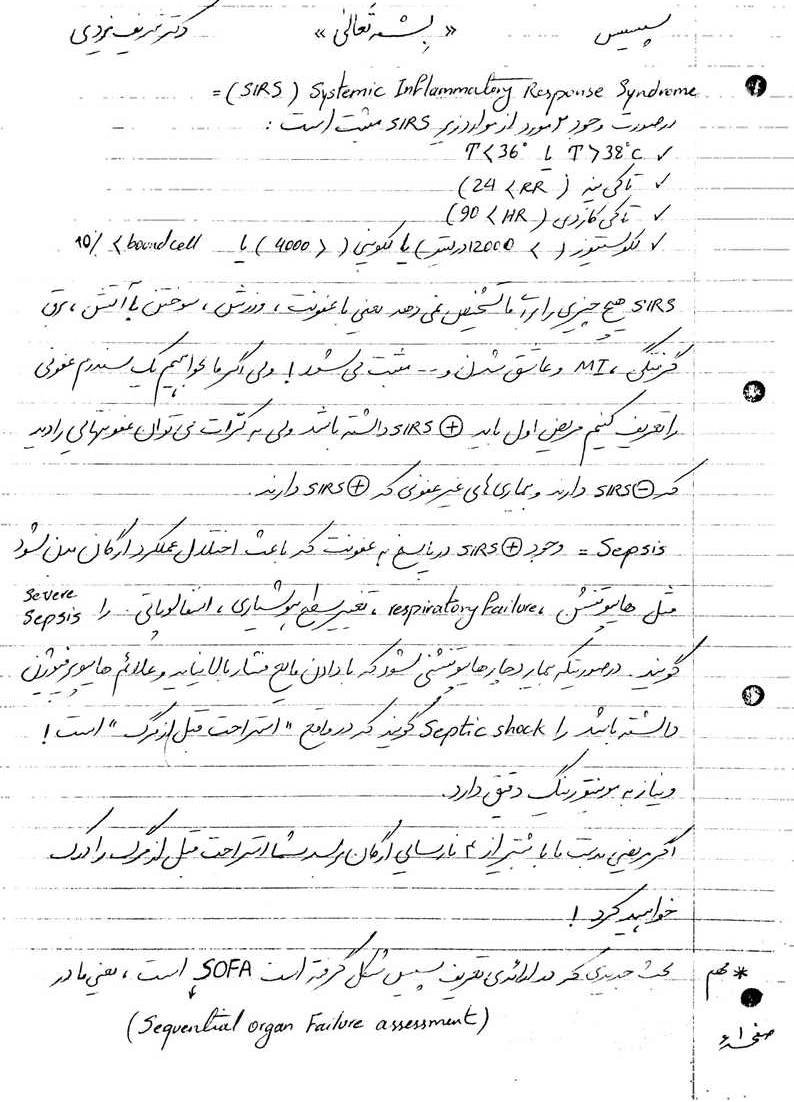 سپسیس « بسمه تعالی » دکتر شریف یزدی
(SIRS) Systemic Inflammatory Response Syndrome =
درصورت وجود ۲ مورد از موارد زیر SIRS مثبت است :
✓ T>38°C یا T<36°
✓ تاکی پنه (24 < RR)
✓ تاکی کاردی (90 < HR)
✓ لکوسیتوز ( > 12000 یا لکوپنی ( < 4000 ) یا 10% < band cell
SIRS هیچ چیزی را برای ما تشخیص نمی دهد یعنی با عفونت ، ورزش ، سوختن با آتش ، برق
گرفتگی ، MI و عاشق شدن و -- مثبت می شود ! ولی اگر ما بخواهیم یک سندرم عفونی
را تعریف کنیم مریض اول باید ⊕ SIRS داشته باشد ولی به کرات می توان عفونتهایی را دید
که ⊖ SIRS دارند و بیماری های غیر عفونی که ⊕ SIRS دارند .
Sepsis = وجود ⊕ SIRS در پاسخ به عفونت که باعث اختلال عملکرد ارگان بدن شود
مثل هایپوتنشن ، respiratory failure ، تغییر سطح هوشیاری ، انسفالوپاتی . را severe sepsis
گویند . درصورتیکه بیمار دچار هایپوتنشنی شود که با دادن مایع فشار بالا نیاید و علائم هایپوپرفیوژن
داشته باشد را Septic shock گویند که در واقع " استراحت قبل از مرگ " است !
و نیاز به مونیتورینگ دقیق دارد .
اگر مریضی بدحت با بیشتر از ۴ نارسایی ارگان برسد شما استراحت قبل از مرگ را درک
خواهید کرد !
* مهم بحث جدیدی که در ابتدای تعریف سپسیس شکل گرفته است SOFA است ، یعنی ما در
(Sequential organ Failure assessment)
صفحه ۱